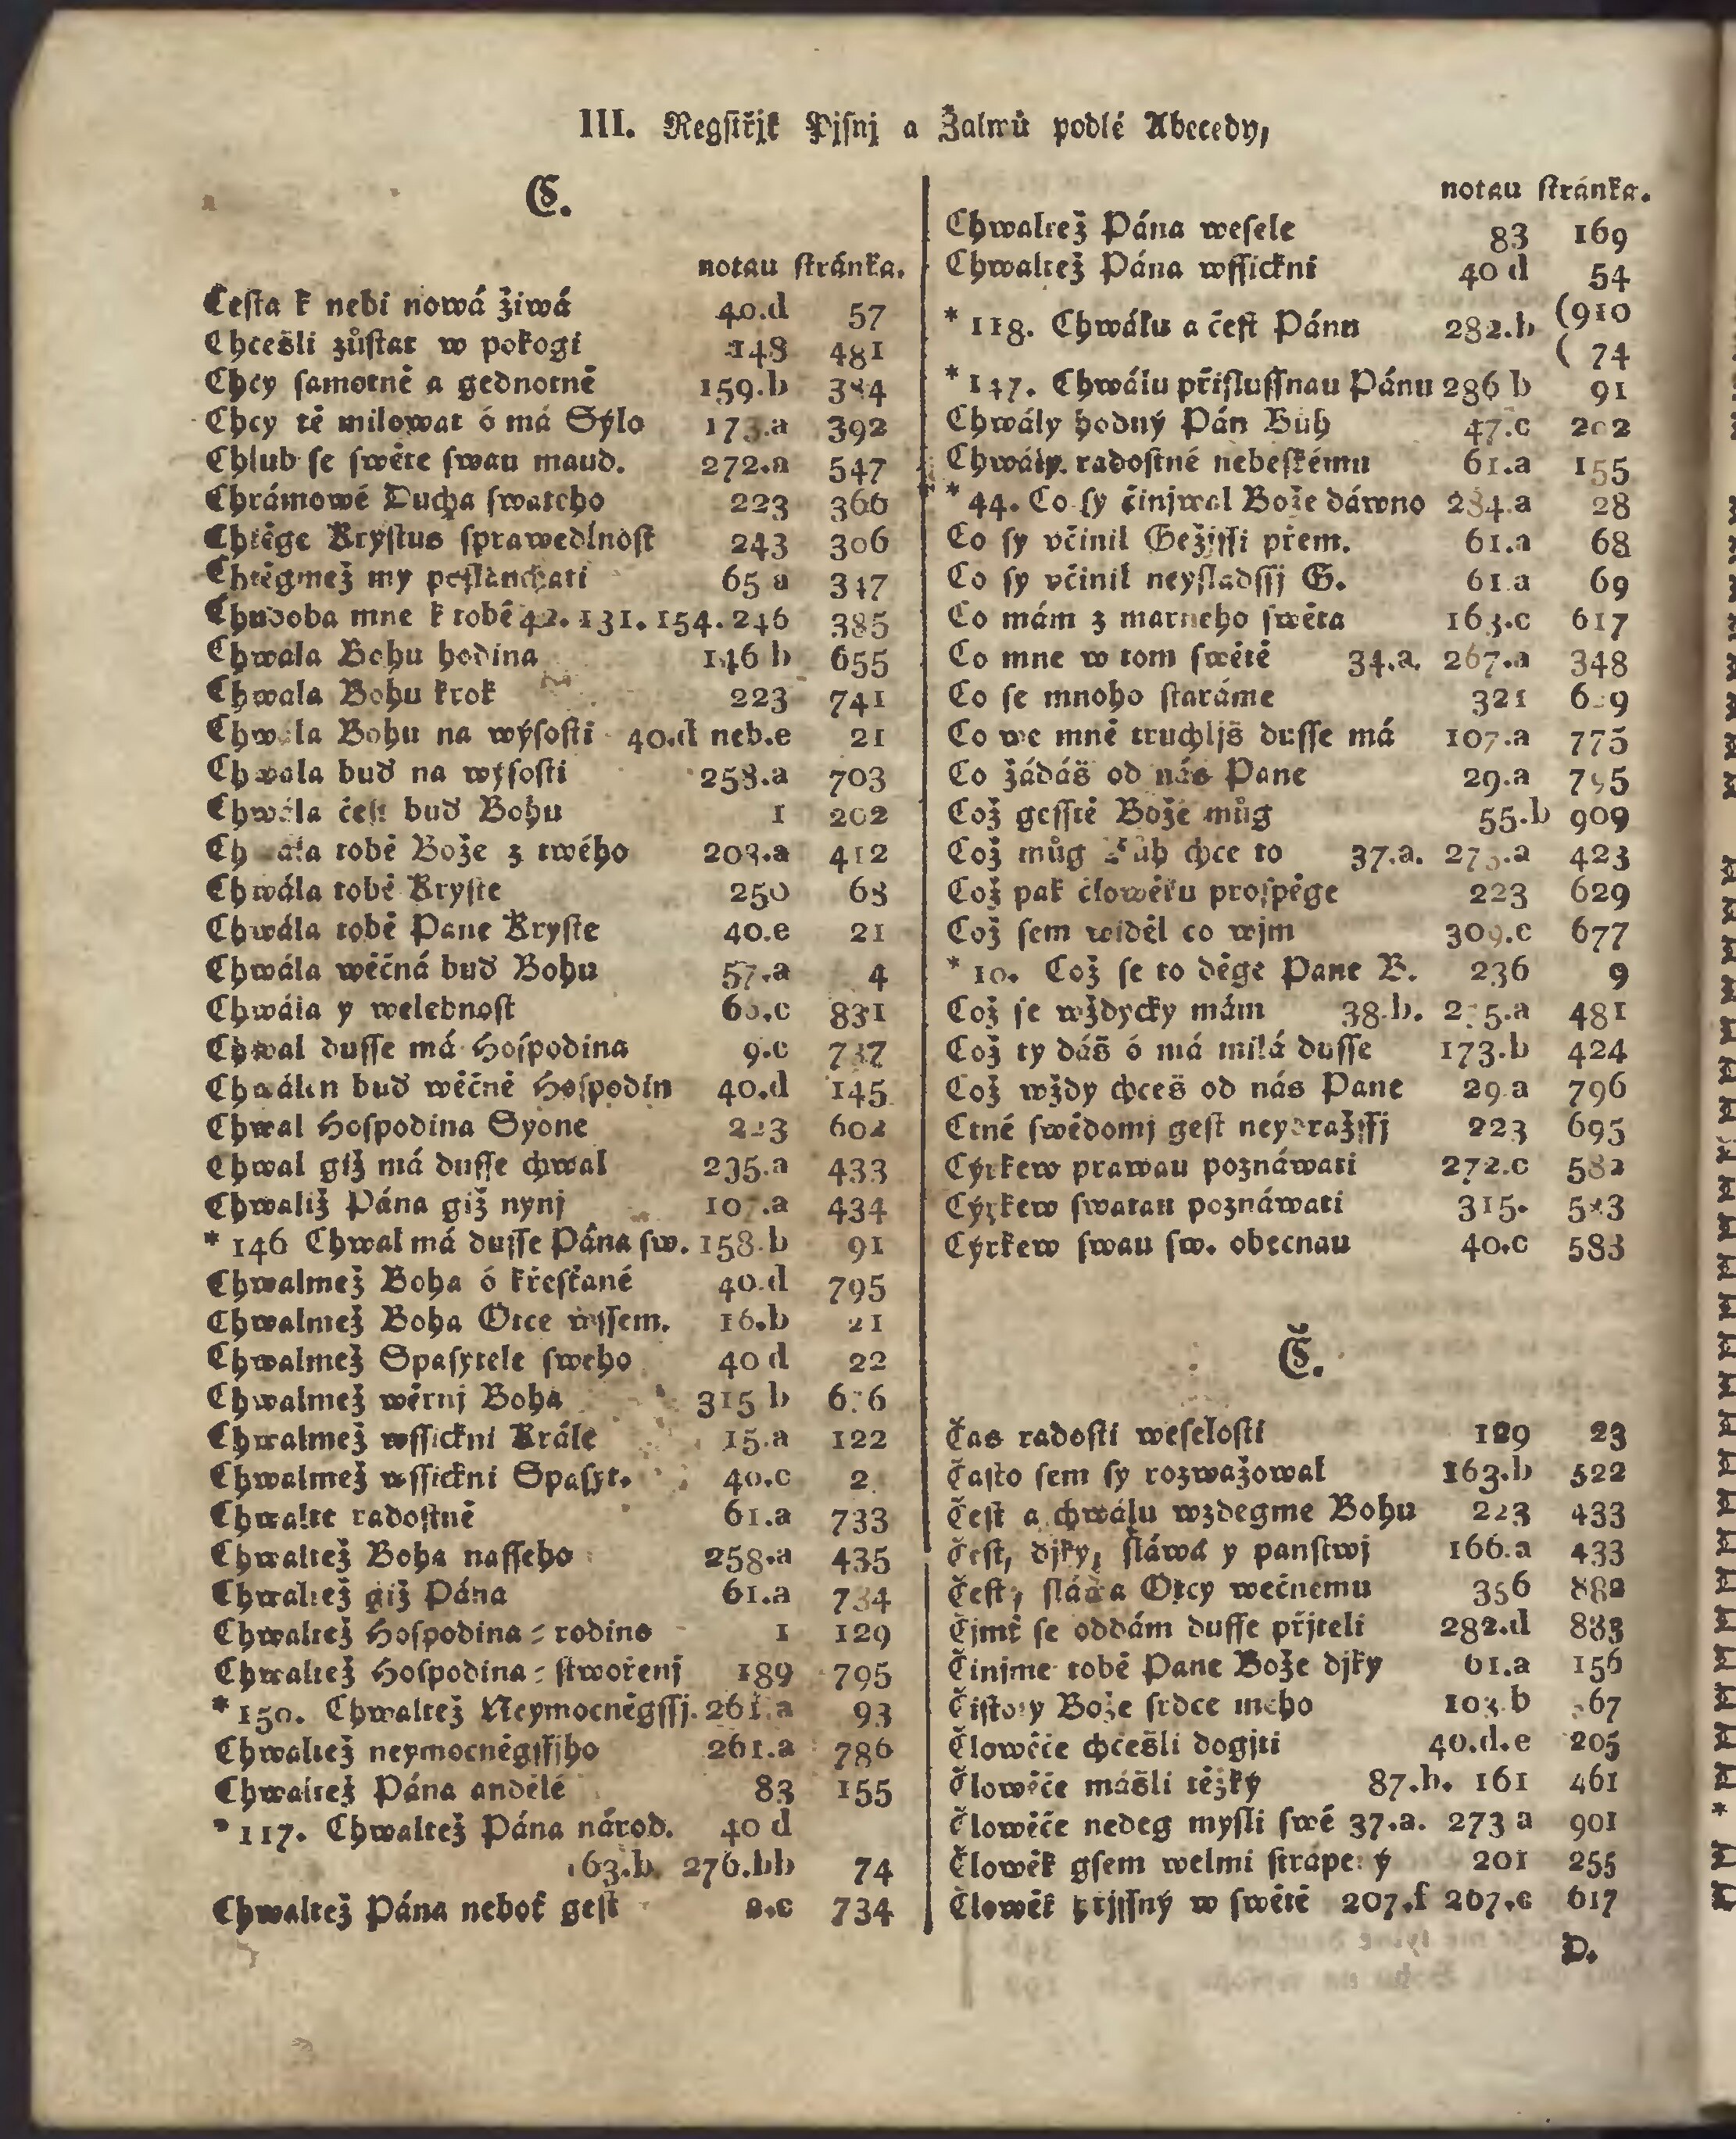 III. Regſtřjk Pjſnj a Žalmů podlé Abecedy,
C.
notau ſtránka.
Ceſta k nebi nowá žiwá 40.d 57
Chceſ̌li zůſtat w pokogi 148 481
Chcy ſamotně a gednotně 159.b 384
Chcy tě milowat ó má Sýlo 173.a 392
Chlub ſe ſwěte ſwau maud. 272.a 547
Chrámowé Ducha ſwateho 223 366
Chtěge Kryſtus ſprawedlnoſt 243 306
Chtěgmež my poſlauchati 65 a 347
Chudoba mne k tobě 42. 131. 154. 246 385
Chwala Bohu hodina 146 b 655
Chwala Bohu krok 223 741
Chwála Bohu na wýſoſti 40.d neb.e 21
Chwala buď na wýſoſti 258.a 703
Chwála čeſt buď Bohu 1 202
Chwála tobě Bože z twého 203.a 412
Chwála tobě Kryſte 250 68
Chwála tobě Pane Kryſte 40.e 21
Chwála wěčná buď Bohu 57.a 4
Chwála y welebnoſt .c 831
Chwal duſſe má Hoſpodina 9.c 737
Chwálen buď wěčně Hoſpodin 40.d 145
Chwal Hoſpodina Syone 223 602
Chwal giž má duſſe chwal 235.a 433
Chwaliž Pána giž nynj 107.a 434
* 146 Chwal má duſſe Pána ſw. 158.b 91
Chwalmež Boha ó křeſťané 40.d 795
Chwalmež Boha Otce wſſem. 16.b 21
Chwalmež Spaſytele ſweho 40 d 22
Chwalmež wěrnj Boha 315 b
Chwalmež wſſickni Krále 15.a 122
Chwalmež wſſickni Spaſyt. 40.c 2
Chwalte radoſtně 61.a 733
Chwaltež Boha naſſeho 258.a 435
Chwaltež giž Pána 61.a 734
Chwaltež Hoſpodina = rodino 1 129
Chwaltež Hoſpodina = ſtwořenj 189 795
* 150. Chwaltež Neymocněgſſj. 261.a 93
Chwaltež neymocněgſſjho 261.a 786
Chwaltež Pána andělé 83 155
* 117. Chwaltež Pána národ. 40 d
163.b. 276.bb 74
Chwaltež Pána neboť geſt 9.c 734
notau ſtránka.
Chwaltež Pána weſele 83 169
Chwaltež Pána wſſickni 40 d 54
* 118. Chwálu a čeſt Pánu 282.b (910
( 74
* 147. Chwálu přiſluſſnau Pánu 286 b 91
Chwály hodný Pán Bůh 47.c 202
Chwály radoſtné nebeſkému 61.a 155
* 44. Co ſy činjwal Bože dáwno 284.a 28
Co ſy včinil Gežjſſi přem. 61.a 68
Co ſy včinil neyſladſſj G. 61.a 69
Co mám z marneho ſwěta 163.c 617
Co mne w tom ſwětě 34.a. 267.a 348
Co ſe mnoho ſtaráme 321
Co we mně truchljš duſſe má 107.a 775
Co žádáš od nás Pane 29.a 795
Což geſſtě Bože můg 55.b 909
Což můg Bůh chce to 37.a. 273.a 423
Což pak člowěku proſpěge 223 629
Což ſem widěl co wjm 309.c 677
* 10. Což ſe to děge Pane B. 236 9
Což ſe wždycky mám 38.b. 275.a 481
Což ty dáš ó má milá duſſe 173.b 424
Což wždy chceš od nás Pane 29 a 796
Ctné ſwědomj geſt neydražſſj 223 695
Cýrkew prawau poznáwati 272.c 582
Cýrkew ſwatau poznáwati 315. 583
Cýrkew ſwau ſw. obecnau 40.c 583
Č.
Čas radoſti weſeloſti 129 23
Čaſto ſem ſy rozwažowal 163.b 522
Čeſt a chwálu wzdegme Bohu 223 433
Čeſt, djky, ſláwa y panſtwj 166.a 433
Čeſt, ſláwa Otcy wečnemu 356 882
Čjmť ſe oddám duſſe přjteli 282.d 883
Činjme tobě Pane Bože djky 61.a 156
Čiſtoty Bože ſrdce meho 103.b 367
Člowěče chceſ̌li dogjti 40.d.e 205
Člowěče máſ̌li těžký 87.b. 161 461
Člowěče nedeg myſli ſwé 37.a. 273 a 901
Člowěk gſem welmi ſtrápený 201 255
Člowěk hřjſſný w ſwětě 207.f 267.e 617
D.